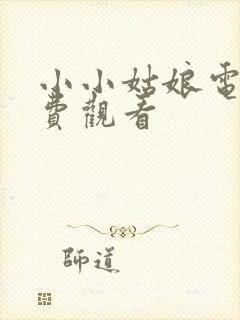 小小姑娘電
費觀看
師道